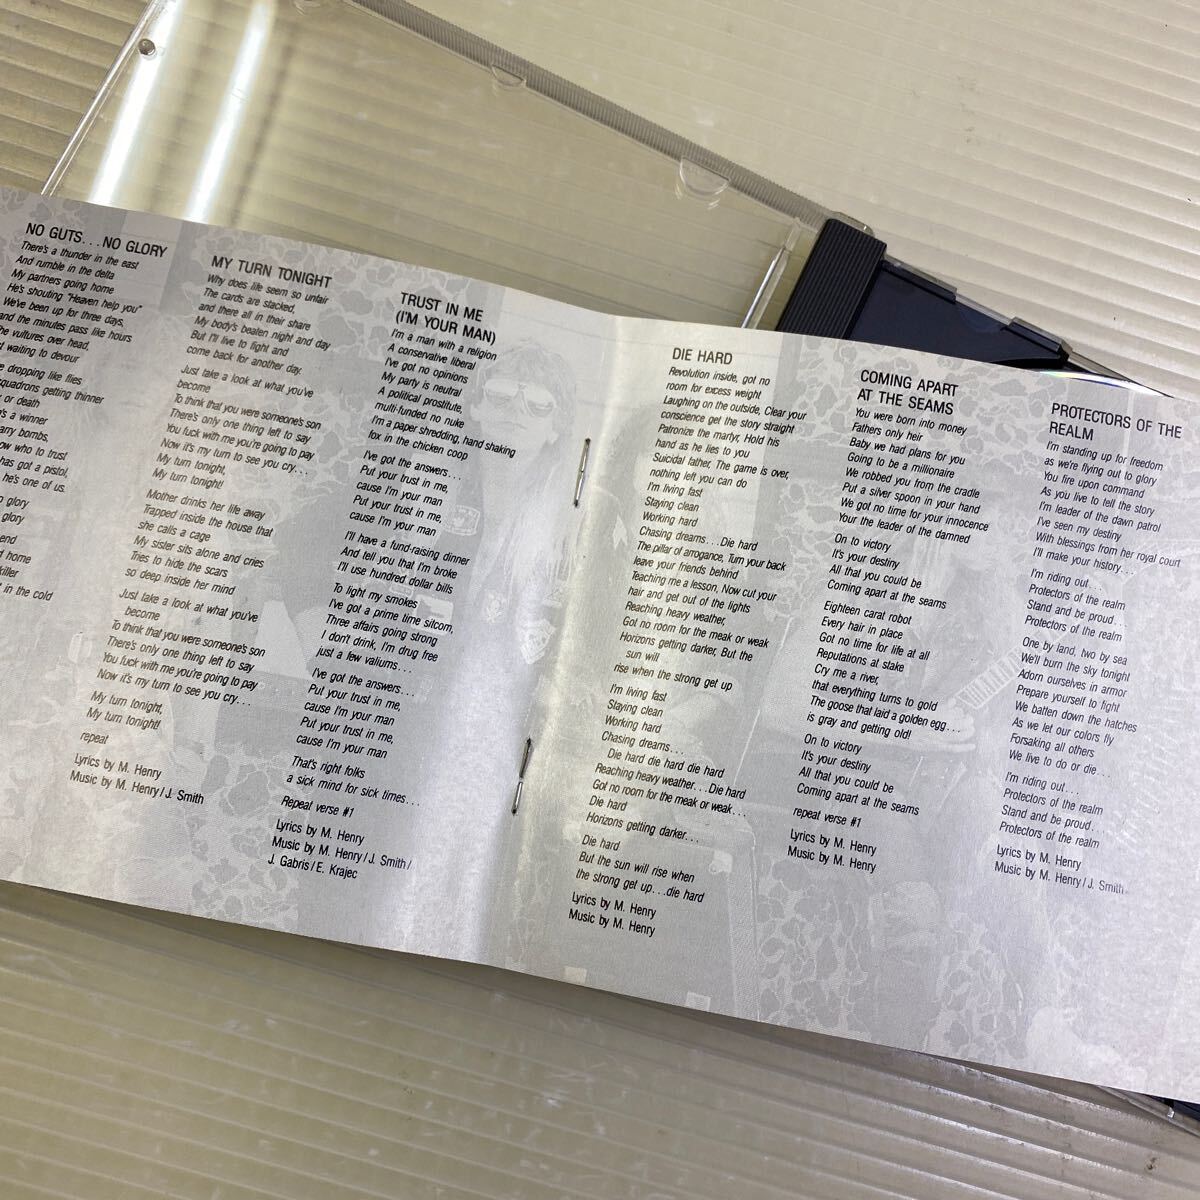 NO GUTS. . .NO GLORY
There's a thunder in the east
And rumble in the delta
My partners going home
He's shouting "Heaven help you"
We've been up for three days,
and the minutes pass like hours
vultures over head,
waiting to devour
dropping like flies
squadrons getting thinner
or death
a winner
bombs,
who to trust
has got a pistol,
he's one of us.
glory
glory
home
killer
in the cold
MY TURN TONIGHT
Why does life seem so unfair
The cards are stacked,
and there all in their share
My body's beaten night and day
But I'll live to fight and
come back for another day.
Just take a look at what you've
become
To think that you were someone's son
There's only one thing left to say
You fuck with me you're going to pay
Now it's my turn to see you cry. . .
My turn tonight,
My turn tonight!
Mother drinks her life away
Trapped inside the house that
she calls a cage
My sister sits alone and cries
Tries to hide the scars
so deep inside her mind
Just take a look at what you've
become
To think that you were someone's son
There's only one thing left to say
You fuck with me you're going to pay
Now it's my turn to see you cry. . .
My turn tonight,
My turn tonight!
repeat
Lyrics by M. Henry
Music by M. Henry/J. Smith
TRUST IN ME
(I'M YOUR MAN)
I'm a man with a religion
A conservative liberal
I've got no opinions
My party is neutral
A political prostitute,
multi-funded no nuke
I'm a paper shredding, hand shaking
fox in the chicken coop
I've got the answers. . .
Put your trust in me,
cause I'm your man
Put your trust in me,
cause I'm your man
I'll have a fund-raising dinner
And tell you that I'm broke
I'll use hundred dollar bills
To light my smokes
I've got a prime time sitcom,
Three affairs going strong
I don't drink, I'm drug free
just a few valiums. . .
I've got the answers. . .
Put your trust in me,
cause I'm your man
Put your trust in me,
cause I'm your man
That's right folks
a sick mind for sick times. . .
Repeat verse #1
Lyrics by M. Henry
Music by M. Henry/J. Smith/
J. Gabris/E. Krajec
DIE HARD
Revolution inside, got no
room for excess weight
Laughing on the outside, Clear your
conscience get the story straight
Patronize the martyr, Hold his
hand as he lies to you
Suicidal father, The game is over,
nothing left you can do
I'm living fast
Staying clean
Working hard
Chasing dreams. . .Die hard
The pillar of arrogance, Turn your back
leave your friends behind
Teaching me a lesson, Now cut your
hair and get out of the lights
Reaching heavy weather,
Got no room for the meak or weak
Horizons getting darker, But the
sun will
rise when the strong get up
I'm living fast
Staying clean
Working hard
Chasing dreams. . .
Die hard die hard die hard
Reaching heavy weather. . .Die hard
Got no room for the meak or weak. . .
Die hard
Horizons getting darker. . .
Die hard
But the sun will rise when
the strong get up. . .die hard
Lyrics by M. Henry
Music by M. Henry
COMING APART
AT THE SEAMS
You were born into money
Fathers only heir
Baby we had plans for you
Going to be a millionaire
We robbed you from the cradle
Put a silver spoon in your hand
We got no time for your innocence
Your the leader of the damned
On to victory
It's your destiny
All that you could be
Coming apart at the seams
Eighteen carat robot
Every hair in place
Got no time for life at all. . .
Reputations at stake
Cry me a river,
that everything turns to gold
The goose that laid a golden egg. . .
is gray and getting old!
On to victory
It's your destiny
All that you could be
Coming apart at the seams
repeat verse #1
Lyrics by M. Henry
Music by M. Henry
PROTECTORS OF THE
REALM
I'm standing up for freedom
as we're flying out to glory
You fire upon command
As you live to tell the story
I'm leader of the dawn patrol
I've seen my destiny
With blessings from her royal court
I'll make your history. . .
I'm riding out. . .
Protectors of the realm
Stand and be proud. . .
Protectors of the realm
One by land, two by sea
We'll burn the sky tonight
Adorn ourselves in armor
Prepare yourself to fight
We batten down the hatches
As we let our colors fly
Forsaking all others
We live to do or die. . .
I'm riding out. . .
Protectors of the realm
Stand and be proud. . .
Protectors of the realm
Lyrics by M. Henry
Music by M. Henry/J. Smith